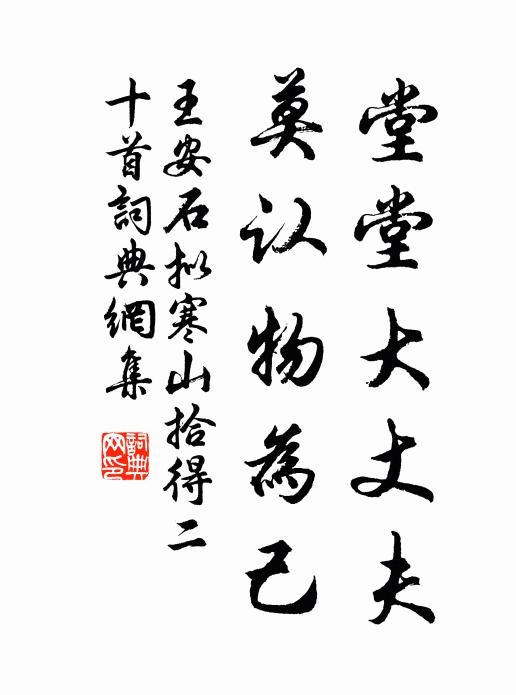 堂堂大丈夫
莫认物為己
王安石拟寒山拾得二
十首詞典網集
詞典网印